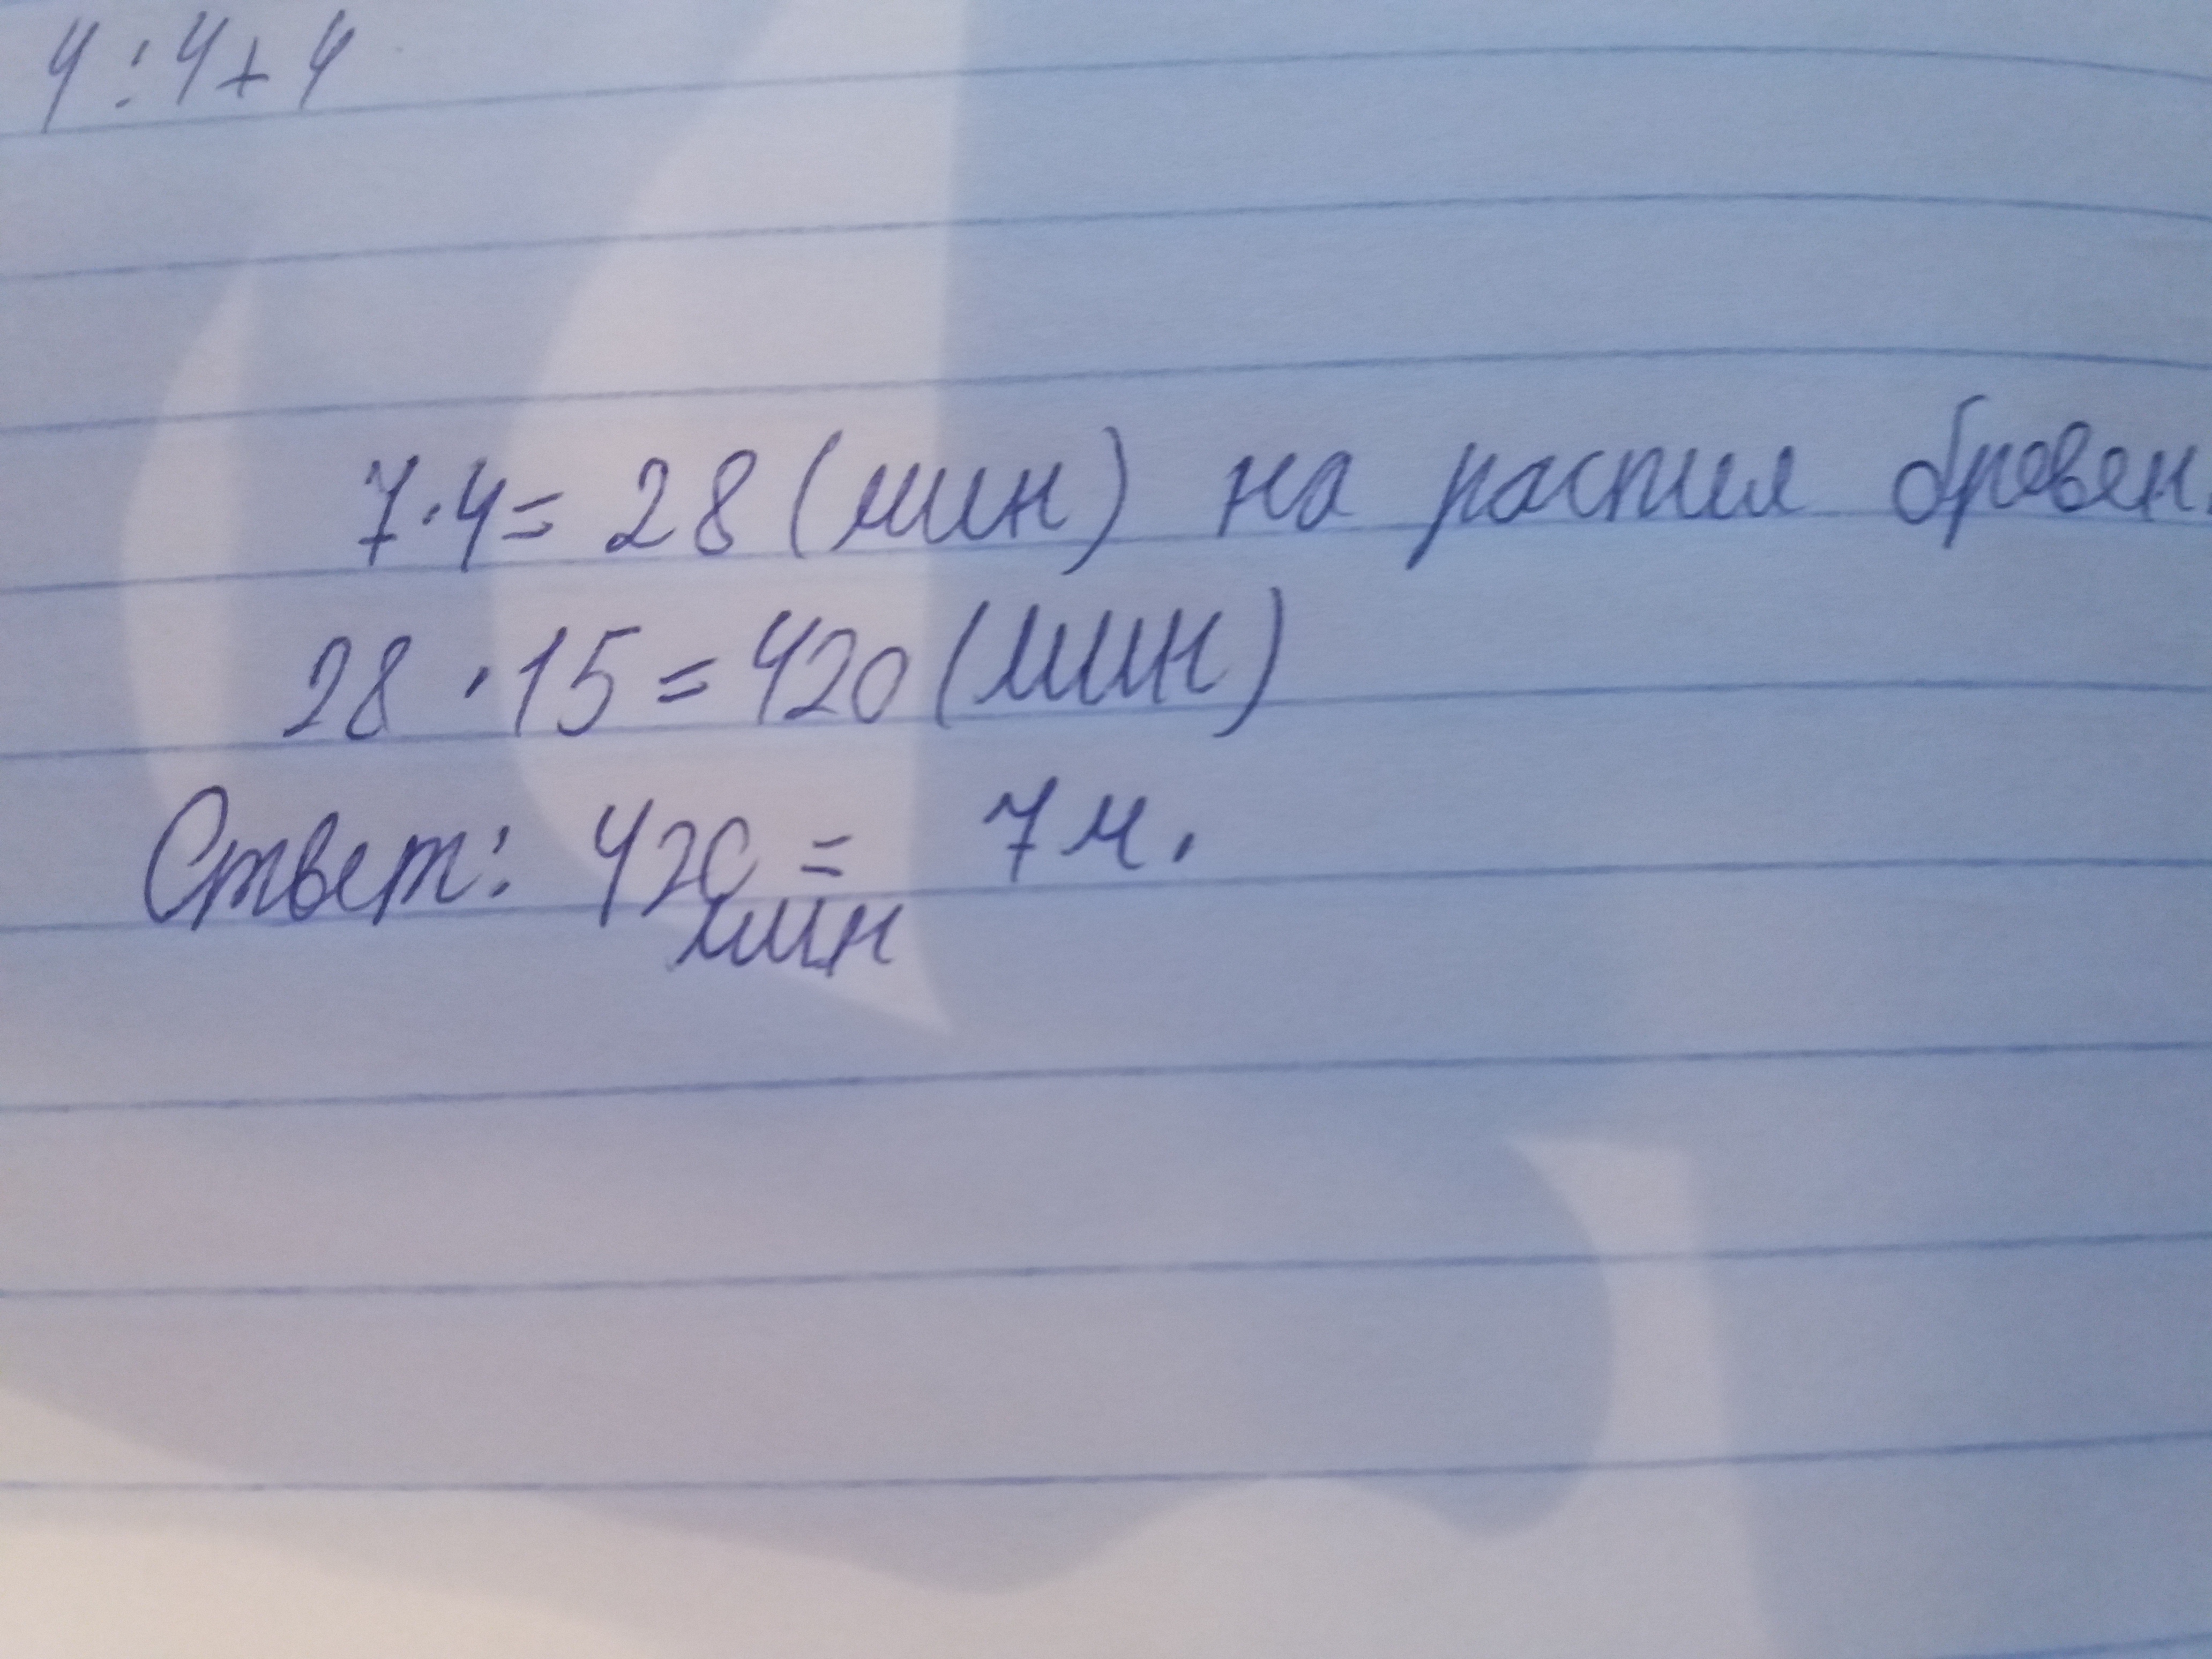 4:4+4
7·4=28(мин) на распил бревен.
28·15=420(мин)
Ответ: 420 = 7 ч.
мин